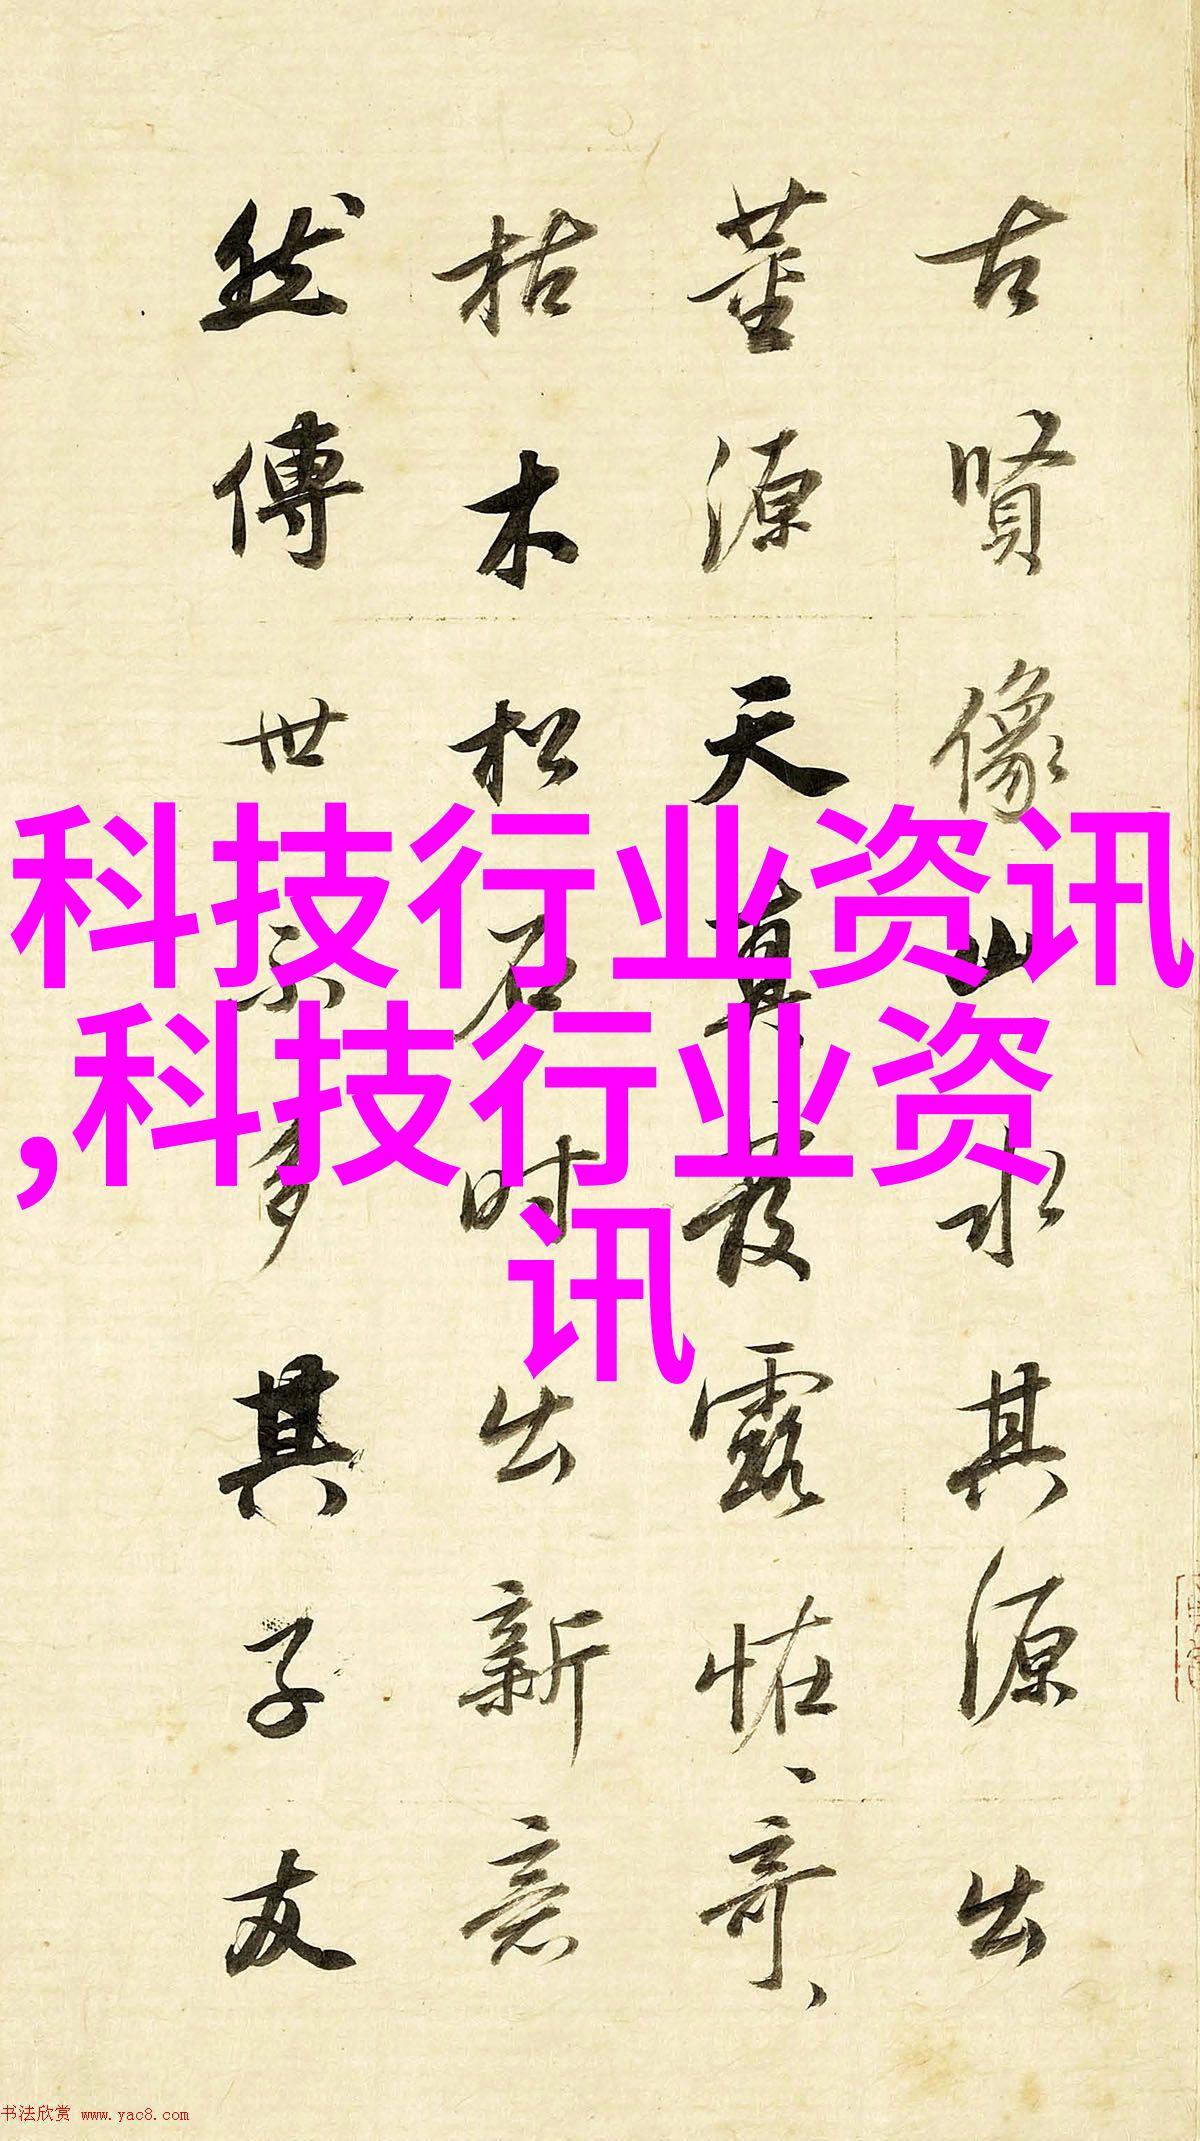 古賢像山水其源出
董源天真發露恠恠奇奇
枯木松石时出新意
然傳世不多其子友
科技行业资讯
,科技行业资
讯
书法欣赏 www.yac8.com